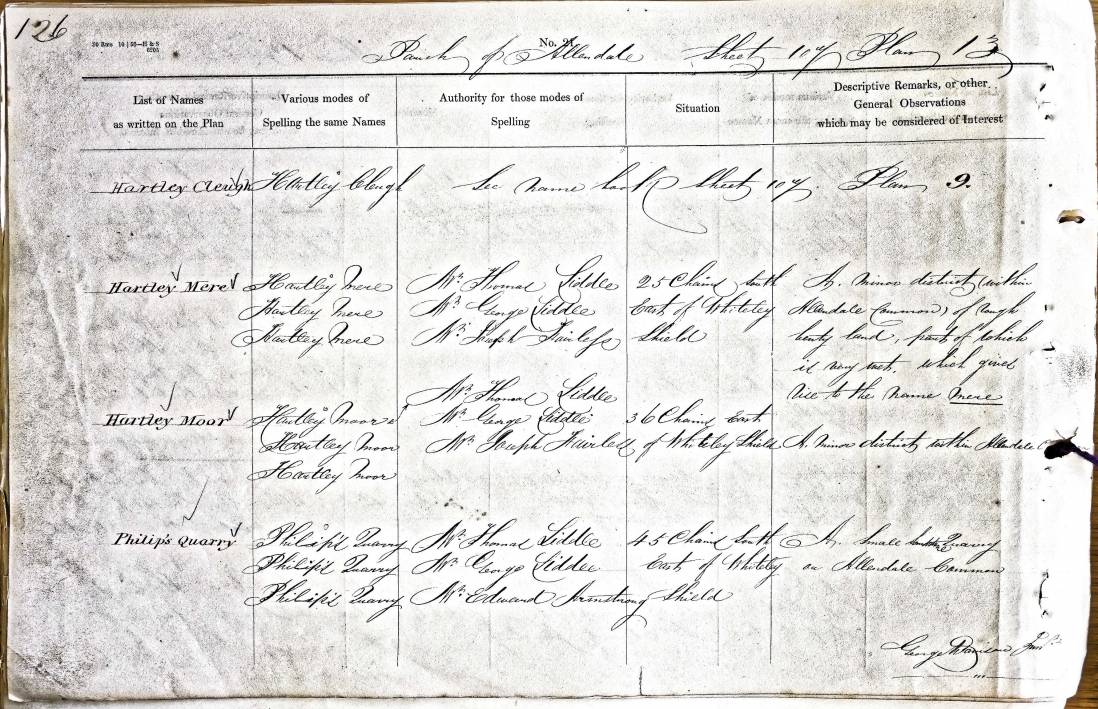 126
30 Rms 10 | 55—H & S
6205
No. 21.
Parish of Allendale Sheet 107 Plan 13
List of Names
as written on the Plan
Various modes of
Spelling the same Names
Authority for those modes of
Spelling
Situation
Descriptive Remarks, or other
General Observations
which may be considered of Interest
Hartley Cleugh Hartley Cleugh See name book Sheet 107. Plan 9.
Hartley Mere Hartley Mere Mr. Thomas Liddle 25 Chains South A minor district (within
Hartley Mere Mr. George Liddle East of Whiteley Allendale Common) of rough
Hartley Mere Mr. Joseph Fairless Shield benty land, part of which
is very wet, which gives
rise to the name mere
Mr. Thomas Liddle
Hartley Moor Hartley Moor Mr. George Liddle 36 Chains East
Hartley Moor Mr. Joseph Fairless of Whiteley Shield A minor district within Allendale
Hartley Moor
Philip's Quarry Philip's Quarry Mr. Thomas Liddle 45 Chains South A small Quarry
Philip's Quarry Mr. George Liddle East of Whiteley on Allendale Common
Philip's Quarry Mr. Edward Armstrong Shield
George